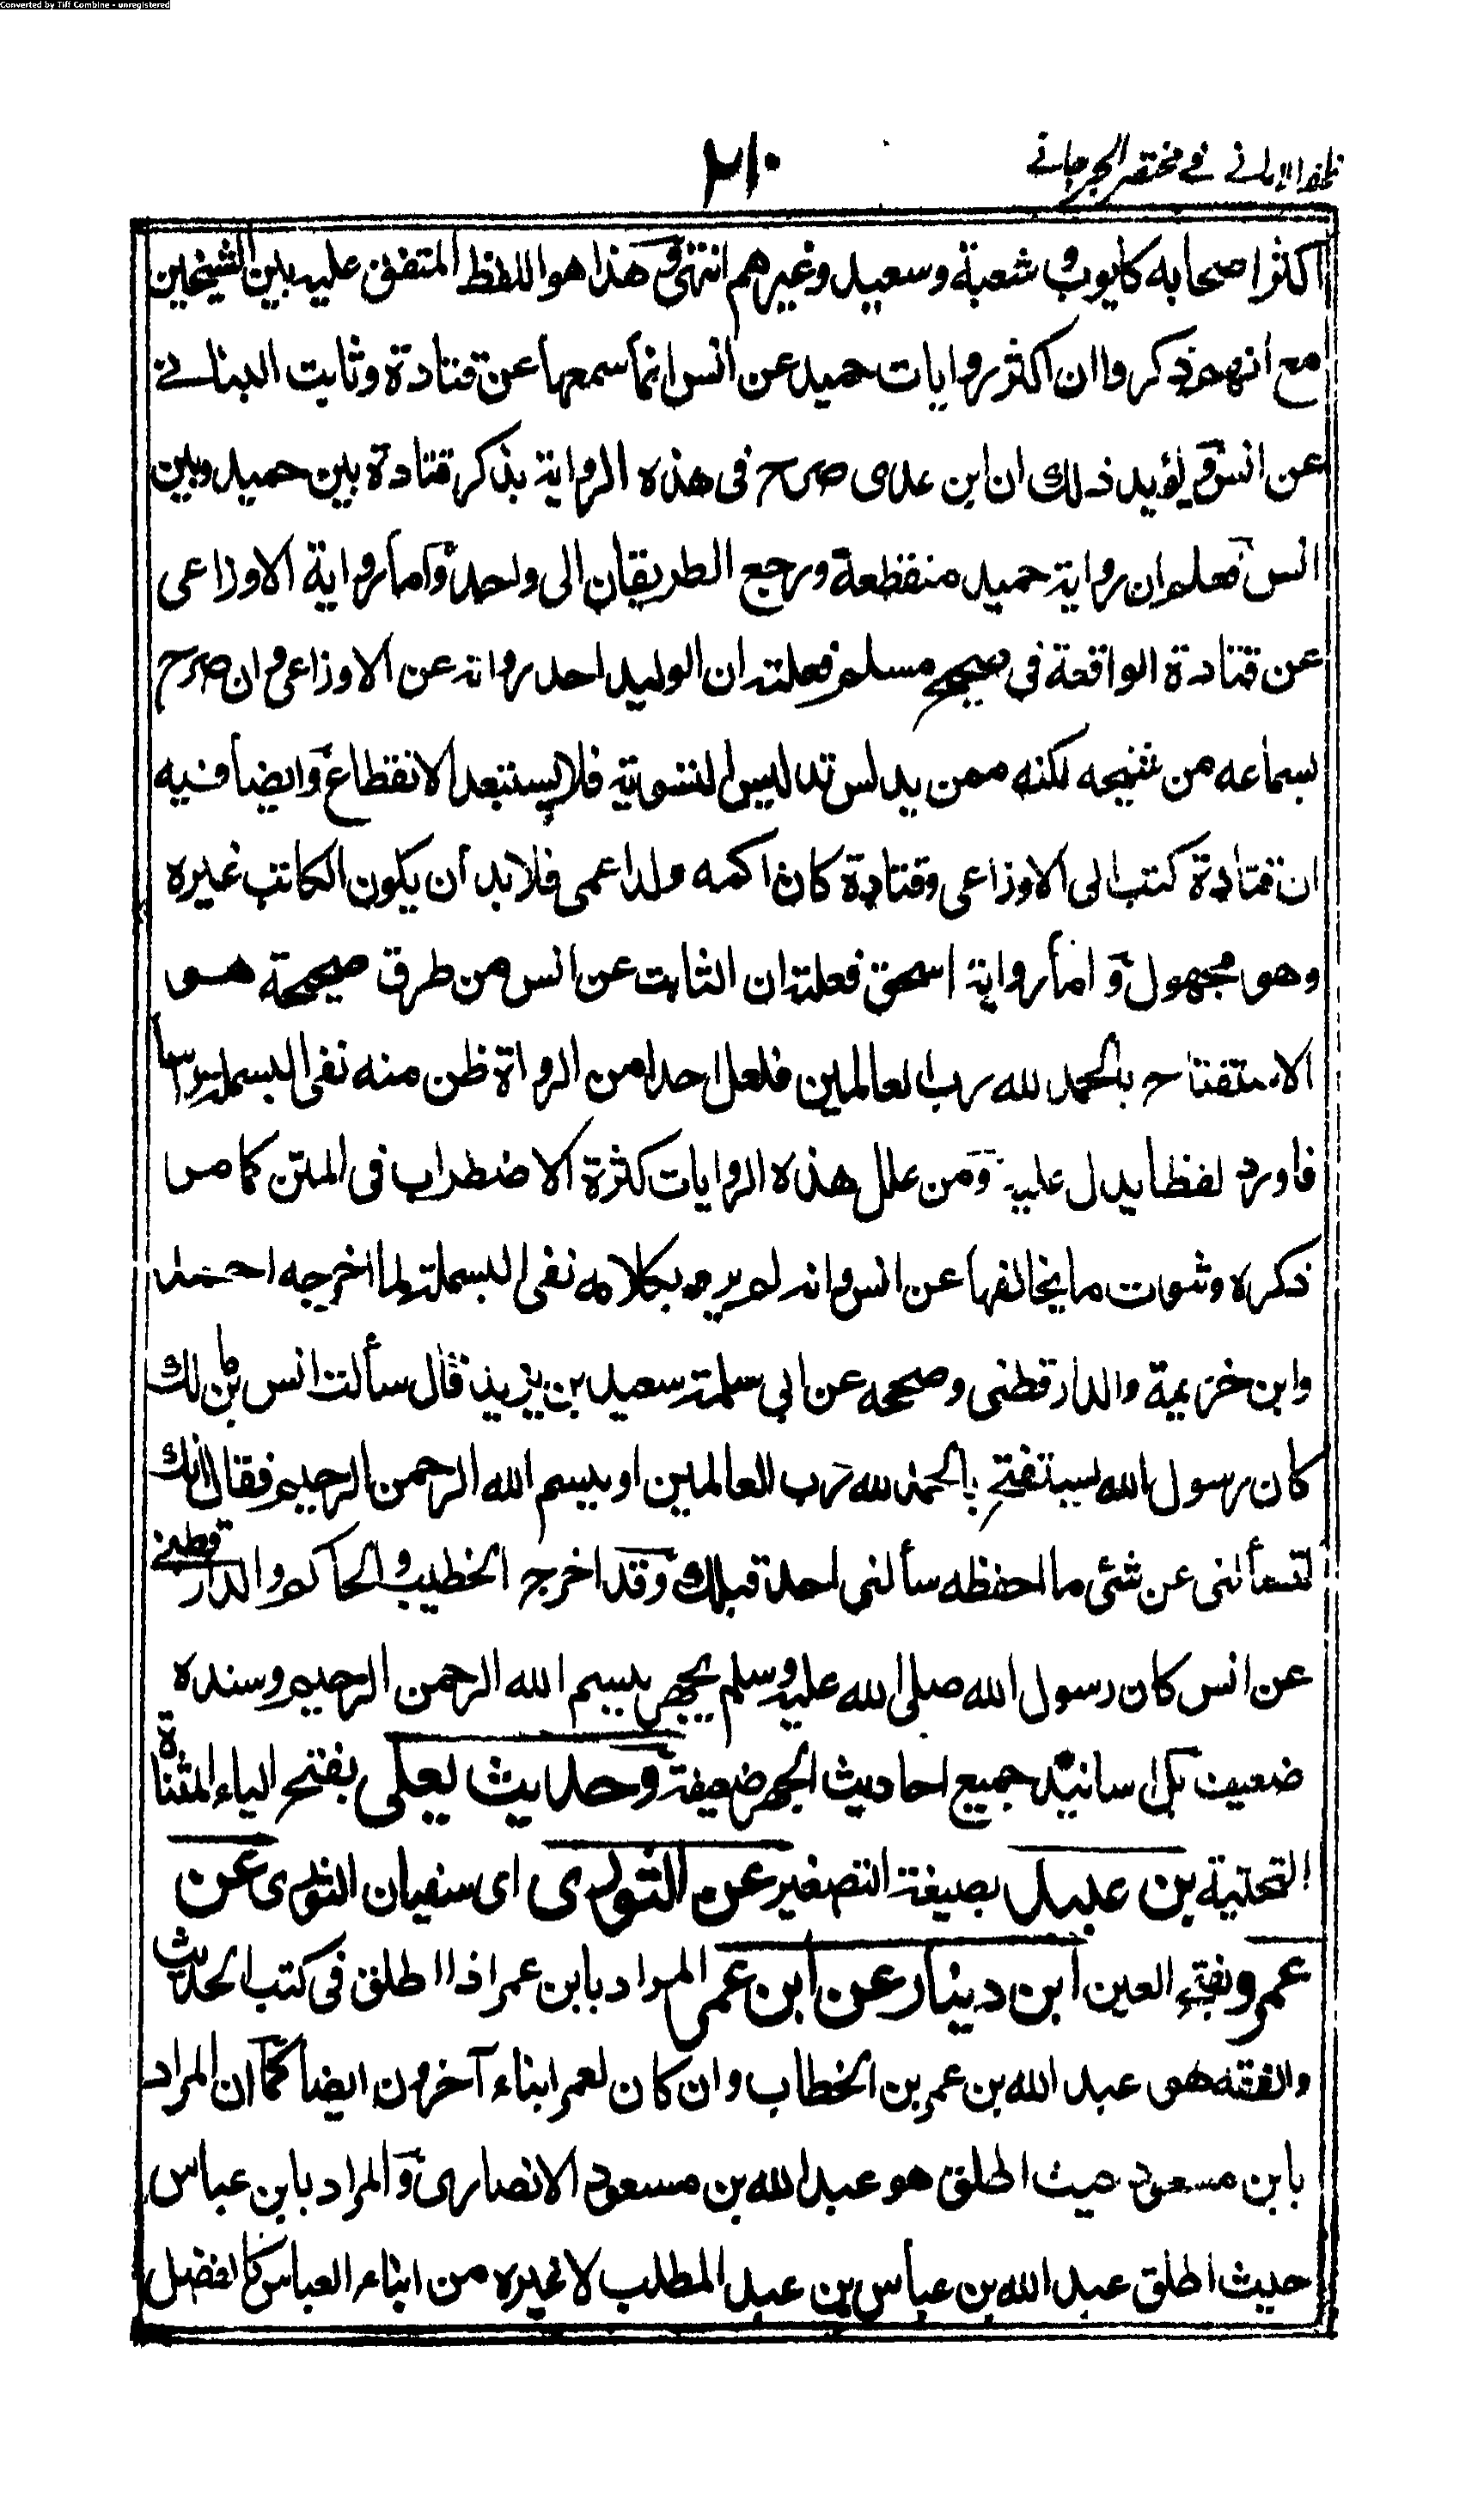 Converted by Tiff Combine - unregistered
ظفر الامانے فے مختصر الجرجانے
٢١٠
اكثر اصحابه كايوب و شعبة وسعيد وغيرهم انتهى و هذا هو اللفظ المتفق عليه بين الشيخين
مع انهم ذكروا ان اكثر روايات حميد عن انس انما سمعها عن قتادة وثابت البنانے
عن انس و يؤيد ذلك ان ابن عدى صرح فى هذه الرواية بذكر قتادة بين حميد وبين
انس فعلم ان رواية حميد منقطعة ورجع الطريقان الى واحد و اما رواية الاوزاعى
عن قتادة الواقعة فى صحيح مسلم فعلته ان الوليد احد رواته عن الاوزاعى و ان صرح
بسماعه من شيخه لكنه ممن يدلس تدليس التسوية فلا يستبعد الانقطاع وايضا فيه
ان قتادة كتب الى الاوزاعى وقتادة كان اكمه ولد اعمى فلا بد ان يكون الكاتب غيره
وهو مجهول و اما رواية اسحق فعلته ان الثابت عن انس من طرق صحيحة هو
الاستفتاح بالحمد لله رب العالمين فلعل احدا من الرواة ظن منه نفى البسملة راسا
فاورد لفظا يدل عليه ومن علل هذه الروايات كثرة الاضطراب فى المتن كما مر
ذكره وثبوت ما يخالفها عن انس و انه لم يرد بكلامه نفى البسملة لما اخرجه احمد
وابن خزيمة والدارقطنى وصححه عن ابى سلمة سعيد بن يزيد قال سألت انس بن مالك
كان رسول الله يستفتح بالحمد لله رب العالمين او ببسم الله الرحمن الرحيم فقال انك
لتسألنى عن شئ ما احفظه سألنى احد قبلك وقد اخرج الخطيب والحاكم والدارقطنے
عن انس كان رسول الله صلى الله عليه وسلم يجهر ببسم الله الرحمن الرحيم وسنده
ضعيف بل اسانيد جميع احاديث الجهر ضعيفة وحديث يعلى بفتح الياء المثناة
التحتية بن عبيد بصيغة التصغير عن الثورى اى سفيان الثورى عن
عمرو بفتح العين ابن دينار عن ابن عمر المراد بابن عمر اذا اطلق فى كتب الحديث
والفقه هو عبد الله بن عمر بن الخطاب وان كان لعمر ابناء آخرون ايضا كما ان المراد
بابن مسعود حيث اطلق هو عبد الله بن مسعود الانصارى و المراد بابن عباس
حيث اطلق عبد الله بن عباس بن عبد المطلب لا غيره من ابناء العباس كالفضل